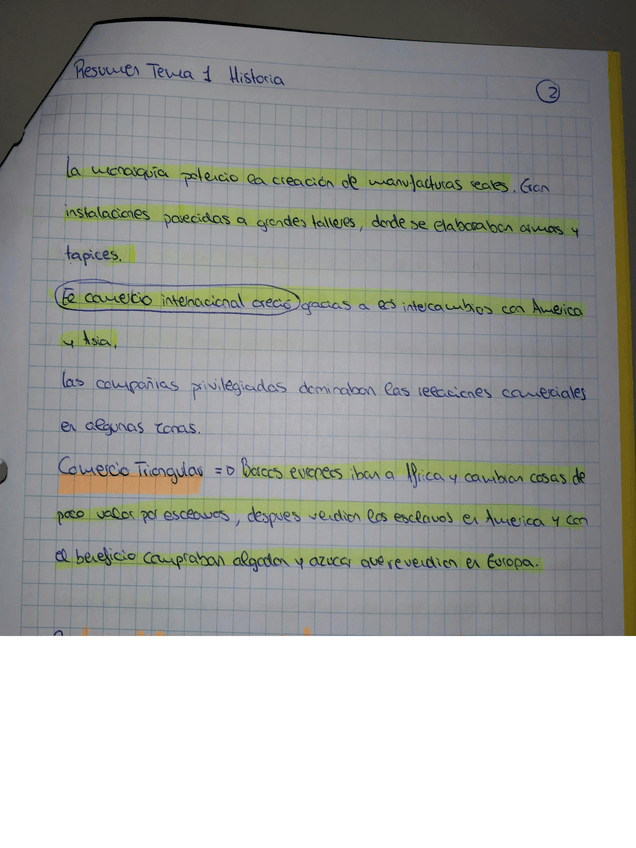 Resumen Tema 1 Historia
2
La monarquía potencio la creación de manufacturas reales. Eran
instalaciones parecidas a grandes talleres, donde se elaboraban armas y
tapices.
El comercio internacional creció gracias a los intercambios con America
y Asia.
Las compañias privilegiadas dominaban las relaciones comerciales
en algunas zonas.
Comercio Triangular => Barcos europeos iban a Africa y cambian cosas de
poco valor por esclavos, despues vendian los esclavos en America y con
el beneficio compraban algodon y azucar que revendian en Europa.